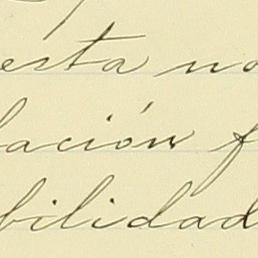 esta no
lación f
bilidad